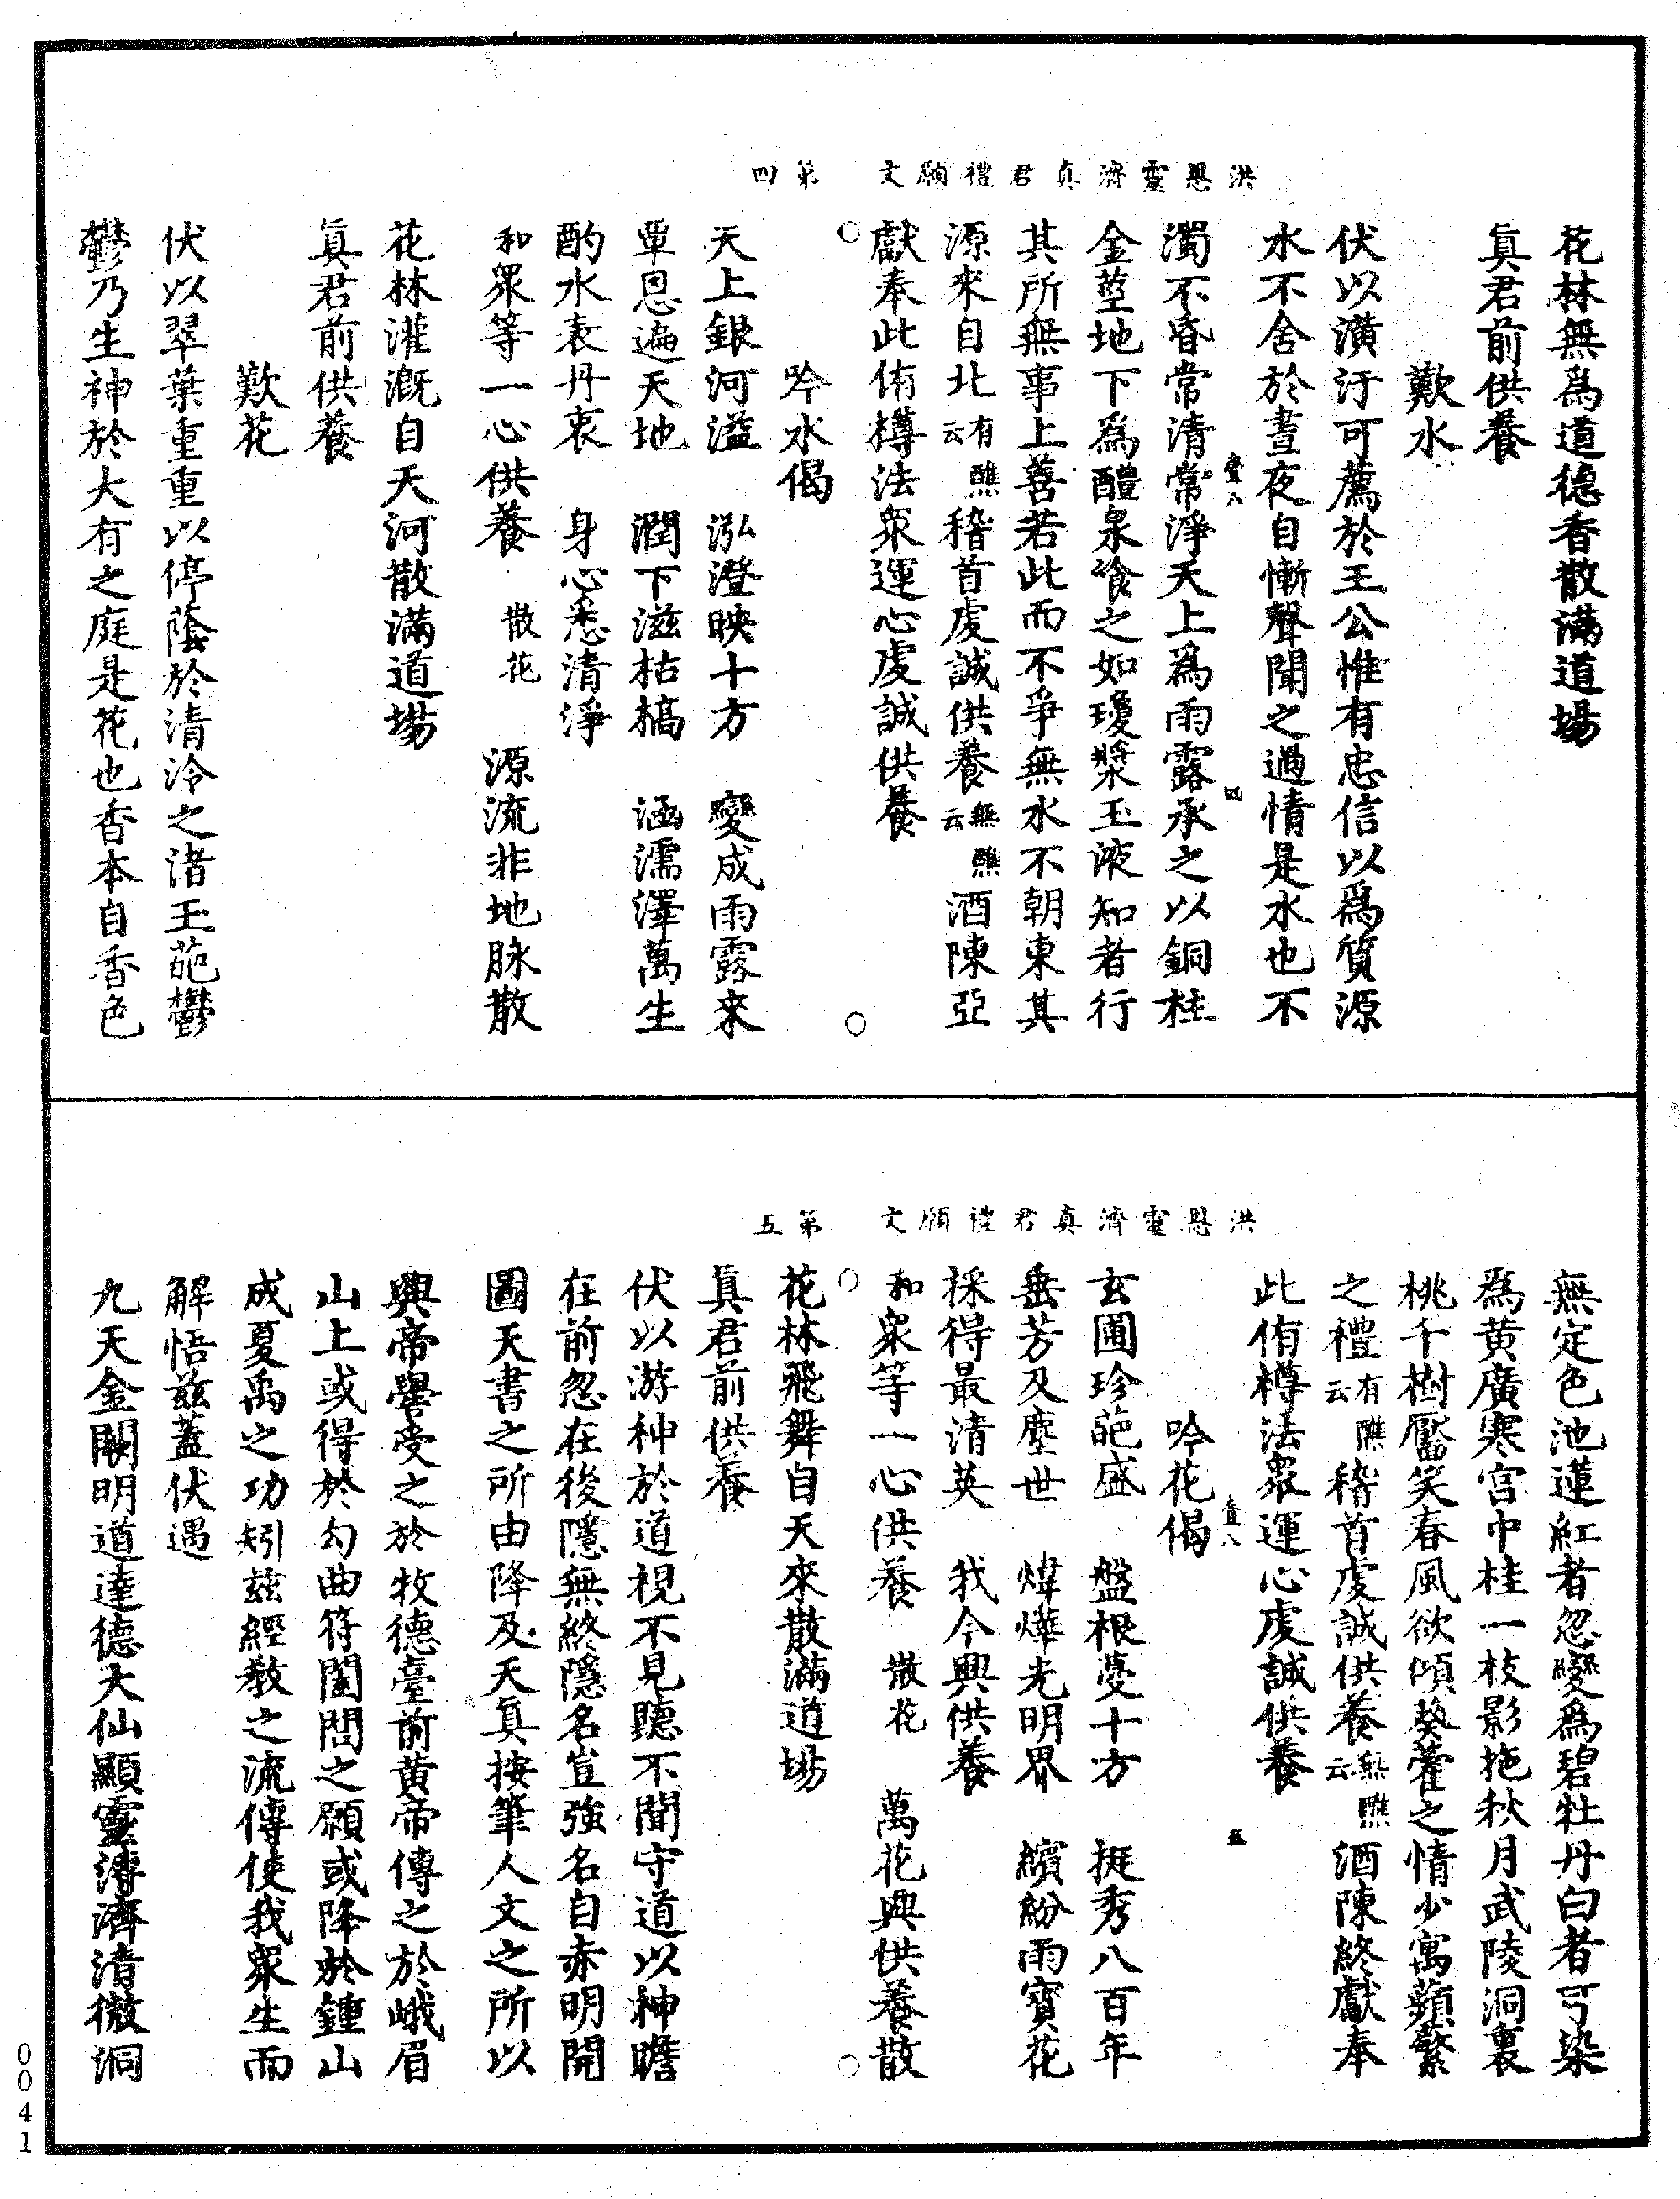 洪恩靈濟真君禮願文　第四
花林無爲道德香散滿道場
眞君前供養
歎水
伏以潢汙可薦於王公惟有忠信以爲質源
水不舍於晝夜自慚聲聞之過情是水也不
壹八　四
濁不昏常清常淨天上爲雨露承之以銅柱
金莖地下爲醴泉飡之如瓊漿玉液知者行
其所無事上善若此而不爭無水不朝東其
源來自北有醮云稽首虔誠供養無醮云酒陳亞
獻奉此侑樽法衆運心虔誠供養
○　○
吟水偈
天上銀河溢　泓澄映十方　變成雨露來
覃恩遍天地　潤下滋枯槁　涵濡澤萬生
酌水表丹衷　身心悉清淨
和衆等一心供養　散花　源流非地脉散
花林灌溉自天河散滿道場
眞君前供養
歎花
伏以翠葉重重以停蔭於清泠之渚玉葩鬱
鬱乃生神於大有之庭是花也香本自香色
洪恩靈濟真君禮願文　第五
無定色池蓮紅者忽變爲碧牡丹白者可染
爲黄廣寒宫中桂一枝影拖秋月武陵洞裏
桃千樹靨笑春風欲傾葵藿之情少寓蘋蘩
之禮有醮云稽首虔誠供養無醮云酒陳終獻奉
此侑樽法衆運心虔誠供養
壹八　五
吟花偈
玄圃珍葩盛　盤根蔓十方　挺秀八百年
垂芳及塵世　煒燁光明界　繽紛雨寶花
採得最清英　我今興供養
和衆等一心供養　散花　萬花興供養散
○　○
花林飛舞自天來散滿道場
眞君前供養
伏以游神於道視不見聽不聞守道以神瞻
在前忽在後隱無終隱名豈強名自赤明開
圖天書之所由降及天眞按筆人文之所以
興帝嚳受之於牧德臺前黄帝傳之於峨眉
山上或得於勾曲符闔閭之願或降於鍾山
成夏禹之功矧兹經教之流傳使我衆生而
解悟兹蓋伏遇
九天金闕明道達德大仙顯靈溥濟清微洞
0041